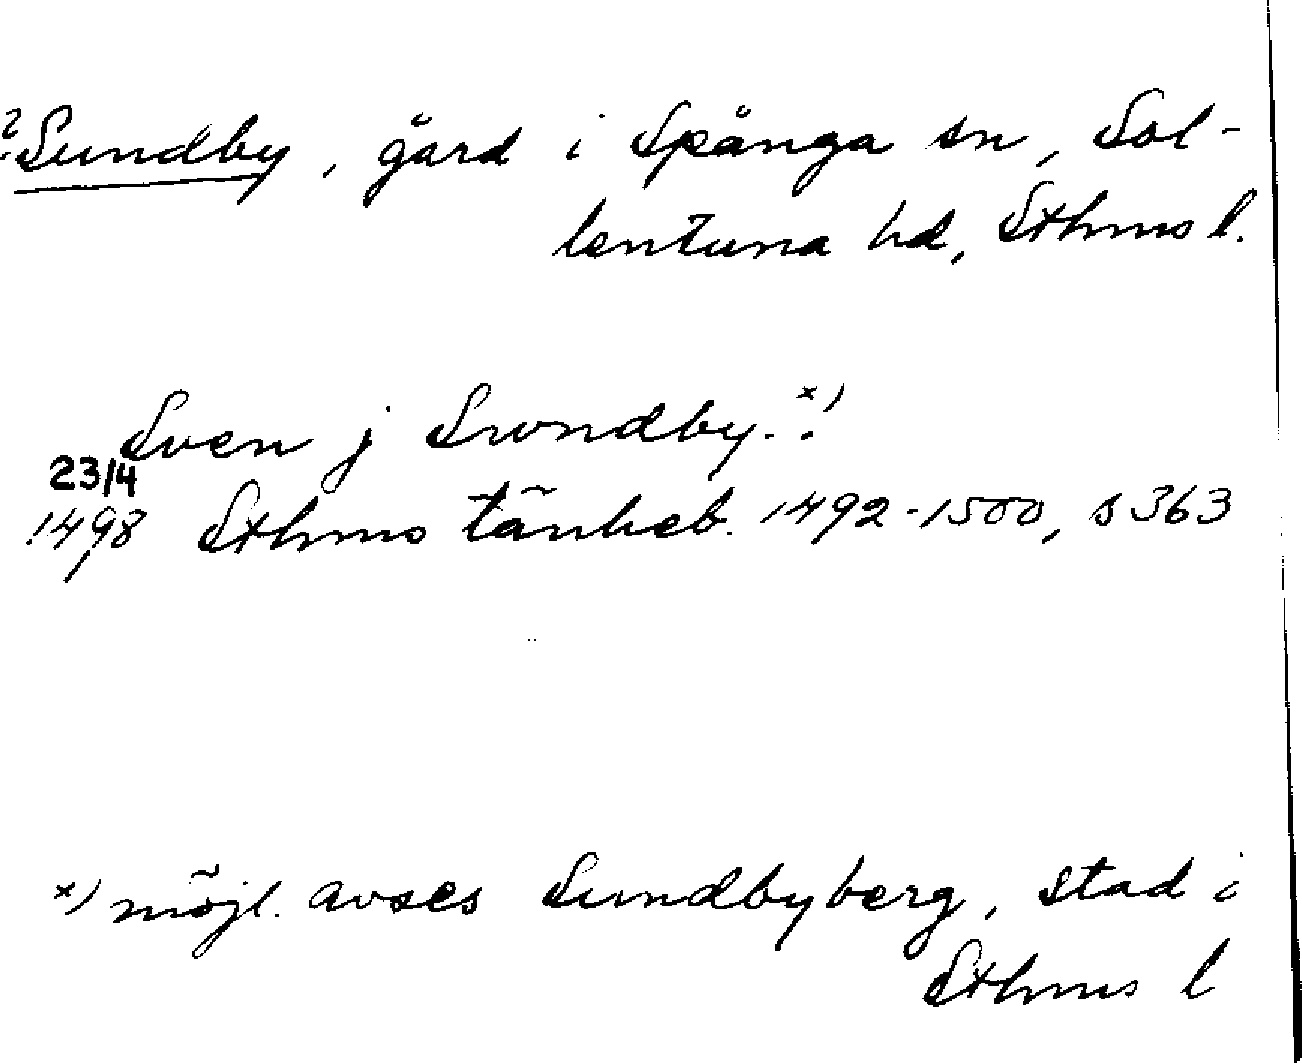 ? Sundby, gård i Spånga sn, Sol-
lentuna hd, Sthms l.
Sven j Swndby. x)
23/4
1498 Sthms tänkeb. 1492-1500, s 363
x) möjl. avses Sundbyberg, stad i
Sthms l